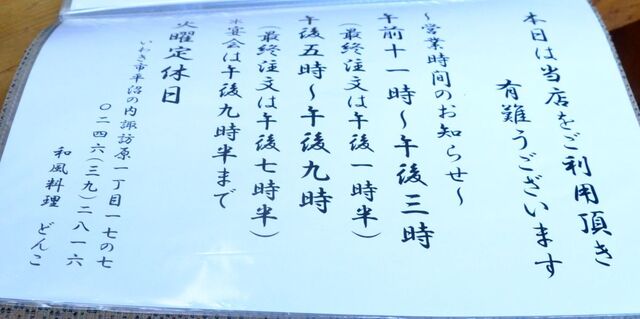 本日は当店をご利用頂き
有難うございます
～営業時間のお知らせ～
午前十一時～午後三時
（最終注文は午後一時半）
午後五時～午後九時
（最終注文は午後七時半）
※宴会は午後九時半まで
火曜定休日
いわき市平沼の内諏訪原一丁目一七の七
〇二四六（三九）二八一六
和風料理 どんこ